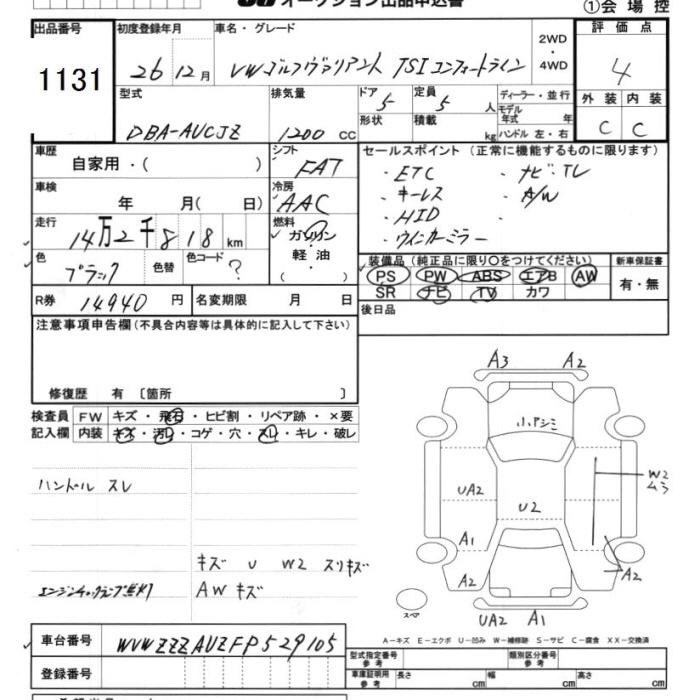 オークション出品申込書
①会場控
出品番号 1131
初度登録年月 26年12月
車名・グレード VWゴルフヴァリアント TSIコンフォートライン
2WD・4WD
評価点 4
外装 C 内装 C
型式 DBA-AUCJZ
排気量 1200 CC
ドア 5
形状
定員 5 人
積載 kg
ディーラー・並行
モデル年式 年
ハンドル 左・右
車歴 自家用・( )
シフト FAT
車検 年 月( 日)
冷房 AAC
走行 14万2千818 km
燃料 ガソリン 軽油 ( )
色 ブラック 色替 色コード ?
R券 14940 円 名変期限 月 日
セールスポイント(正常に機能するものに限ります)
・ETC ・ナビ・TV
・キーレス ・A/W
・HID ・
・ウインカーミラー
装備品(純正品に限り○をつけてください)
PS PW ABS エアB AW
SR ナビ TV カワ
新車保証書 有・無
後日品
注意事項申告欄(不具合内容等は具体的に記入して下さい)
修復歴 有 〔箇所 〕
検査員記入欄
FW キズ・飛石・ヒビ割・リペア跡・×要
内装 キズ・汚れ・コゲ・穴・スレ・キレ・破レ
ハンドル スレ
キズ U W2 スリキズ
エンジンチェックランプ点灯 AWキズ
A3 A2
小アジミ
W2
ムラ
UA2 U2
A1
A2 A2
スペア
UA2 A1
A-キズ E-エクボ U-凹み W-補修跡 S-サビ C-腐食 XX-交換済
車台番号 WVWZZZAUZFP529105
登録番号
型式指定番号 参考 類別区分番号 参考
車庫証明用 参考 長さ cm 幅 cm 高さ cm